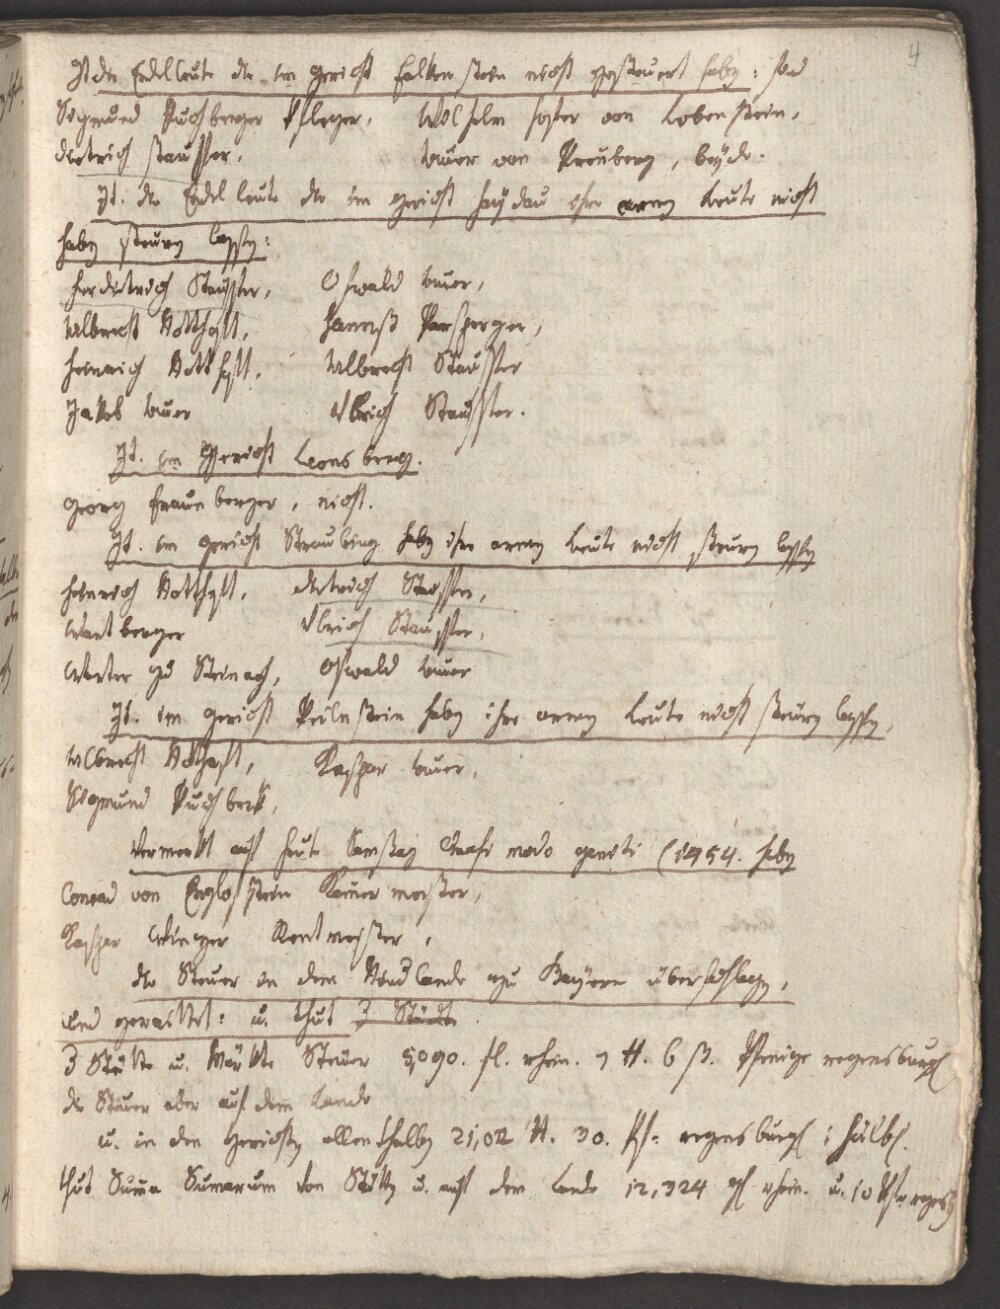 4
It. die Edelleute die im gericht Falkenstein nicht gesteuert haben: sind
Sigmund Puchberger Pfleger, Wilhelm Hofer von Lobenstein,
dietrich stauffer, Auer von Prenberg, beyde.
It. die Edelleute die im gericht haydau ihre armen Leute nicht
haben steuern lassen:
Her dietrich Stauffer, Oswald Auer,
Albrecht Notthafft, Hanns Parsperger,
Heinrich Notthafft, Albrecht Stauffer
Jakob Auer Ulrich Stauffer.
It. im Gericht Leonsberg.
Georg Fraunberger, nicht.
It. im gericht Straubing haben ihre armen Leute nicht steuern lassen
Heinrich Notthafft, dietrich Stauffer,
Wartberger Ulrich Stauffer,
Warter zu Steinach, Oswald Auer
It. im gericht Peilnstein haben ihre armen Leute nicht steuern lassen,
Albrecht Notthafft, Kaspar Auer,
Sigmund Puchberk,
Vermerkt auf heute Samstag quasi modo geniti (1454. haben
Conrad von Eglofstein Kamermeister,
Kaspar Winzer Rentmeister,
die Steuer in dem Niderlande zu Bayern überschlagen,
und geraittet: u. thut 3 Städt
3 Städte u. Märkte Steuer 5090. fl. rhein. 7 ℔. 6 ß. Pfenige regensburg.
die Steuer aber auf dem Lande
u. in den gerichten allenthalben 30. Pf. regensburg.
thut Suma Sumarum von Städten u. auf dem Lande 12,324 rhein. u. 10 regensb.